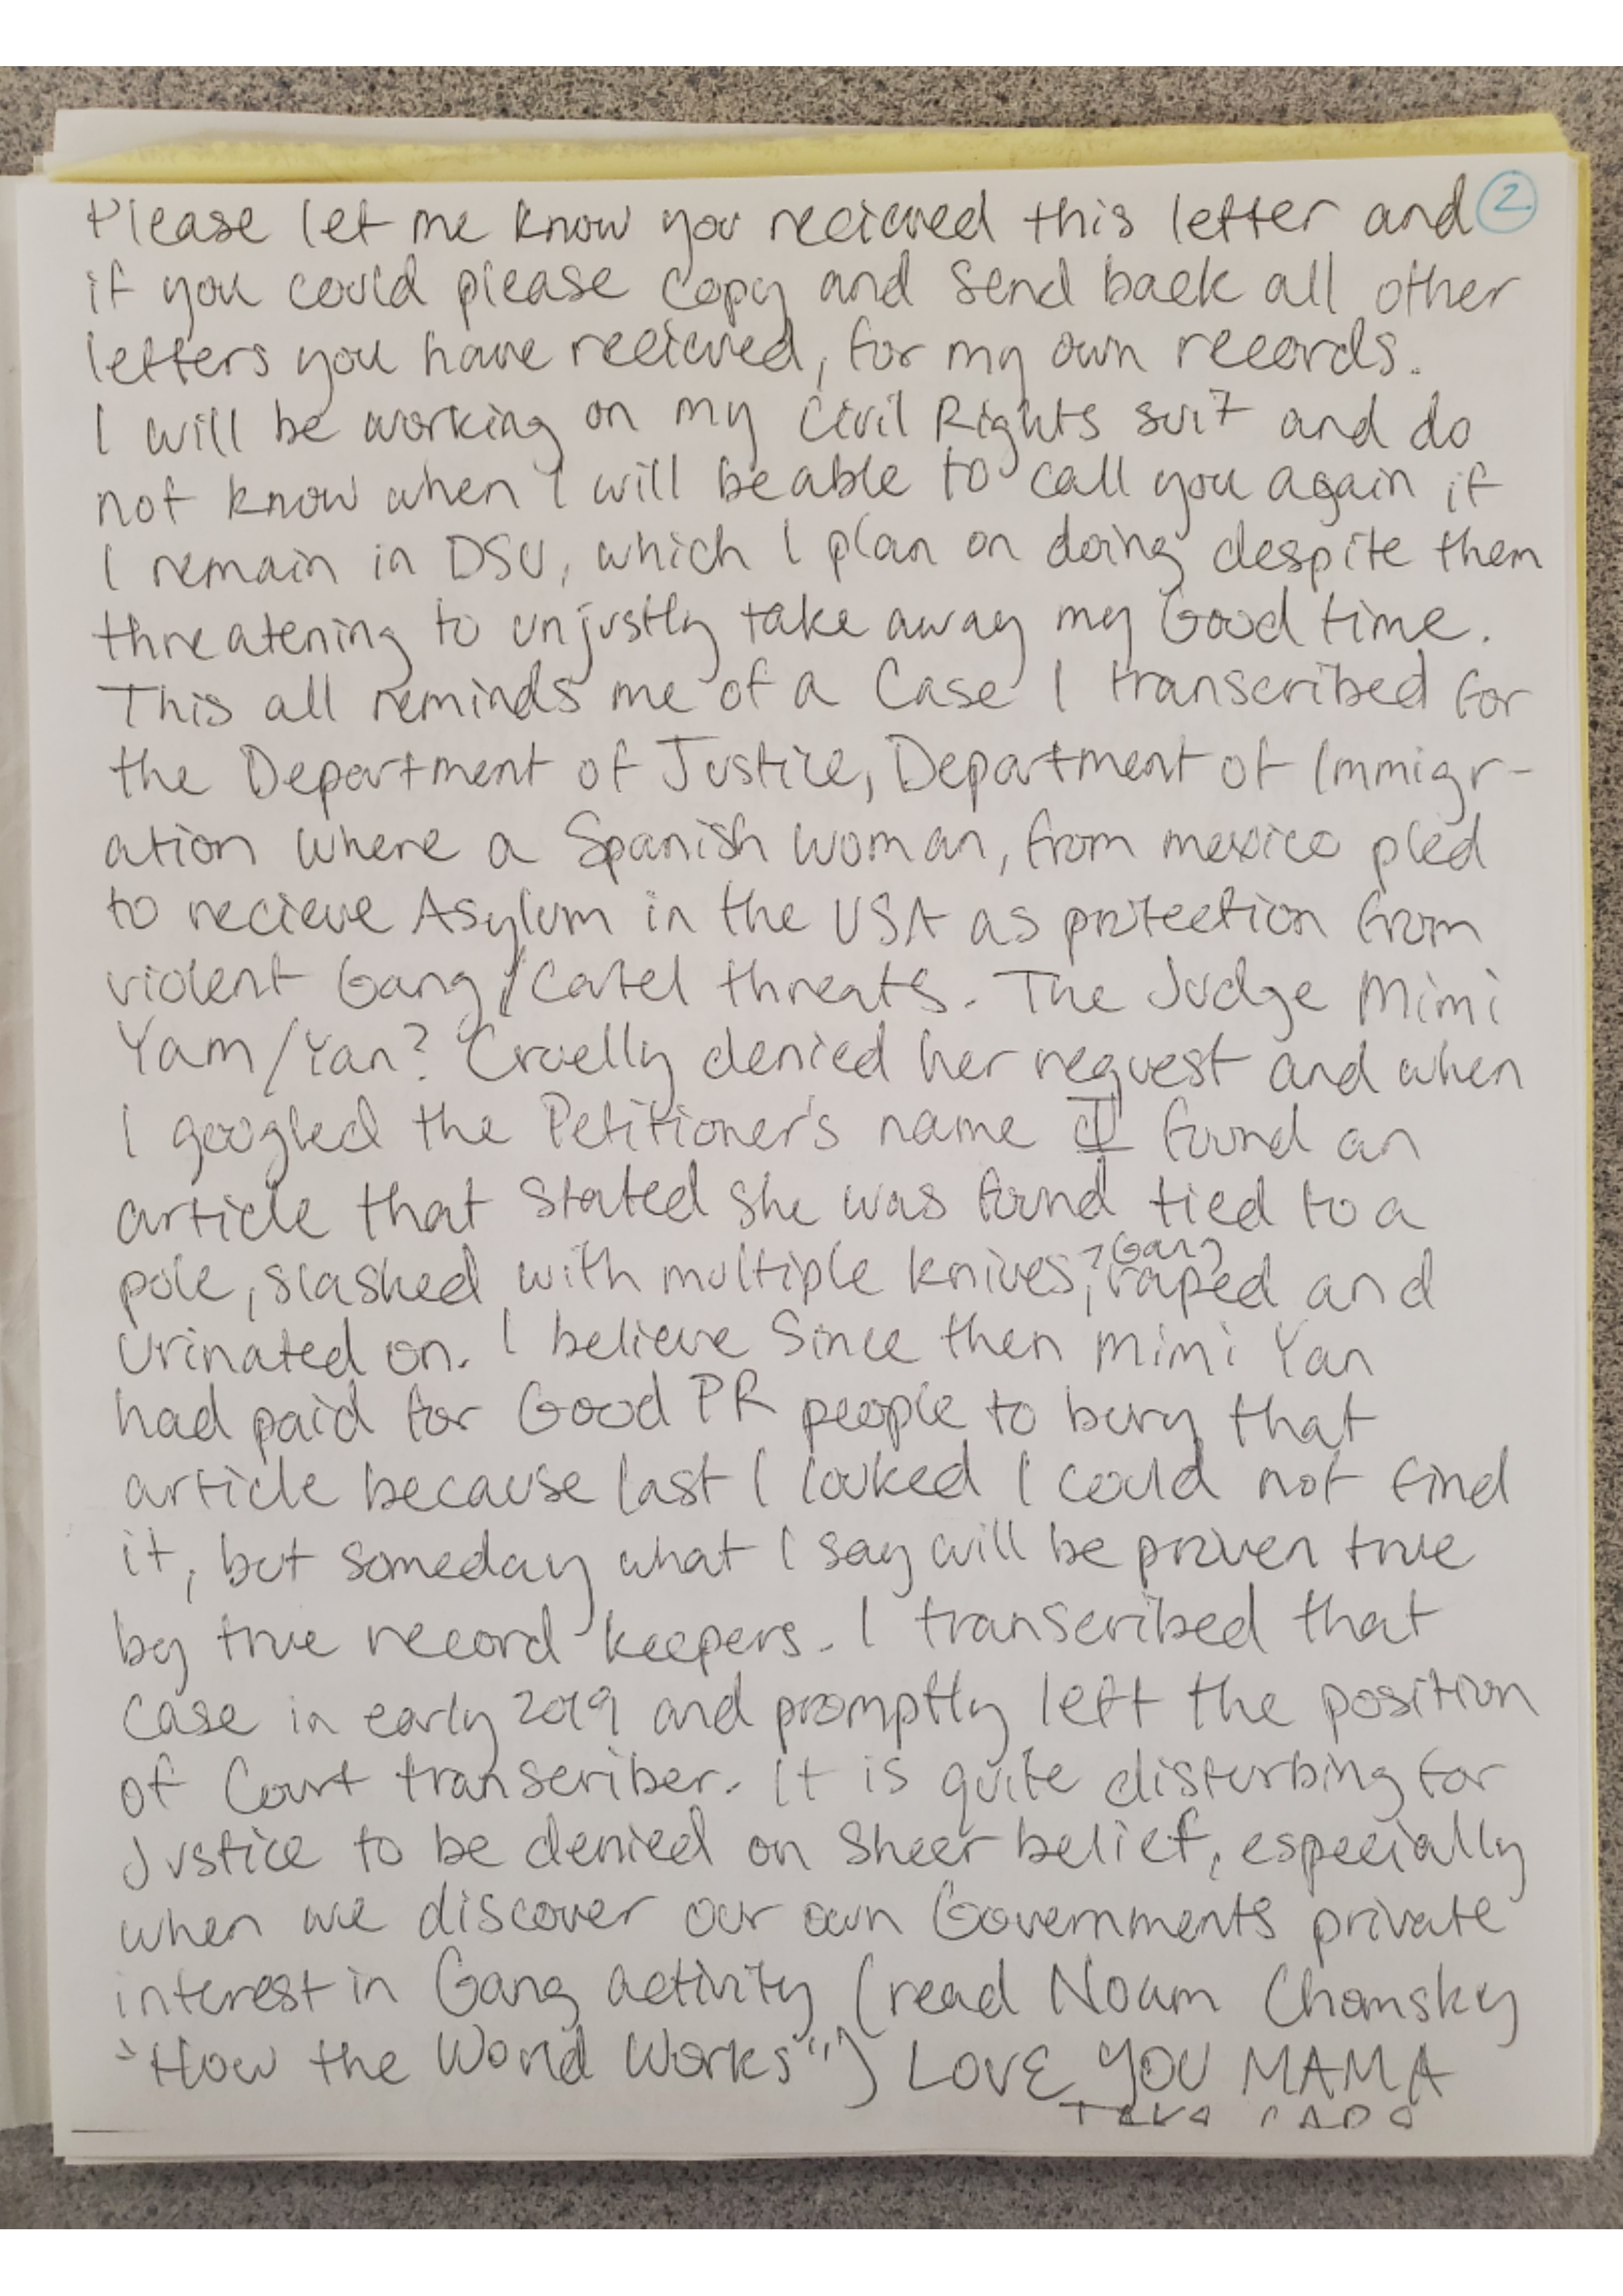 Please let me know you recieved this letter and ②
if you could please copy and send back all other
letters you have recieved, for my own records.
I will be working on my Civil Rights suit and do
not know when I will be able to call you again if
I remain in DSU, which I plan on doing despite them
threatening to unjustly take away my Good time.
This all reminds me of a Case I transcribed for
the Department of Justice, Department of Immigr-
ation where a Spanish woman, from mexico pled
to recieve Asylum in the USA as protection from
violent Gang/Catel threats. The Judge Mimi
Yam/Yan? Cruelly denied her request and when
I googled the Petitioner's name I found an
article that stated she was found tied to a
pole, slashed with multiple knives, ?Gang raped and
Urinated on. I believe Since then Mimi Yan
had paid for Good PR people to bury that
article because last I looked I could not find
it, but someday what I say will be proven true
by true record keepers. I transcribed that
Case in early 2019 and promptly left the position
of Court transcriber. It is quite disturbing for
Justice to be denied on Sheer belief, especially
when we discover our own Governments private
interest in Gang activity (read Noam Chomsky
"How the World Works") LOVE YOU MAMA